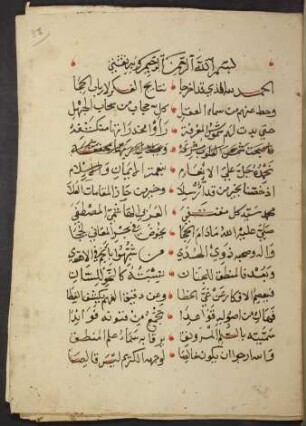 بسم الله الرحمن الرحيم وبه ثقتي
الحمد لله الذي قد اخرجا نتايج الفكر لارباب الحجا
وحط عنهم من سماء العقل كل حجاب من سحاب الجهل
حتى بدت لهم شموس المعرفة راوا مخدراتها منكشفة
نحمده جل على الانعام بنعمة الايمان والاسلام
اذ خصنا بخير من قد ارسلا وخير من حاز المقامات العلا
محمد سيد كل مقتفى العربي الهاشمي المصطفى
صلى عليه الله مادام الحجا يخوض من بحر المعاني لججا
واله وصحبه ذوي الهدى من شبهوا بانجم في الاهتدى
وبعد فالمنطق للجنان نسبته كالنحو للسان
فيعصم الافكار عن غي الخطا وعن دقيق الفهم يكشف الغطا
فهاك من اصوله قواعدا تجمع من فنونه فوايدا
سميته بالسلم المرونق يرقا به سماء علم المنطق
والله ارجو ان يكون خالصا لوجهه الكريم ليس قالصا